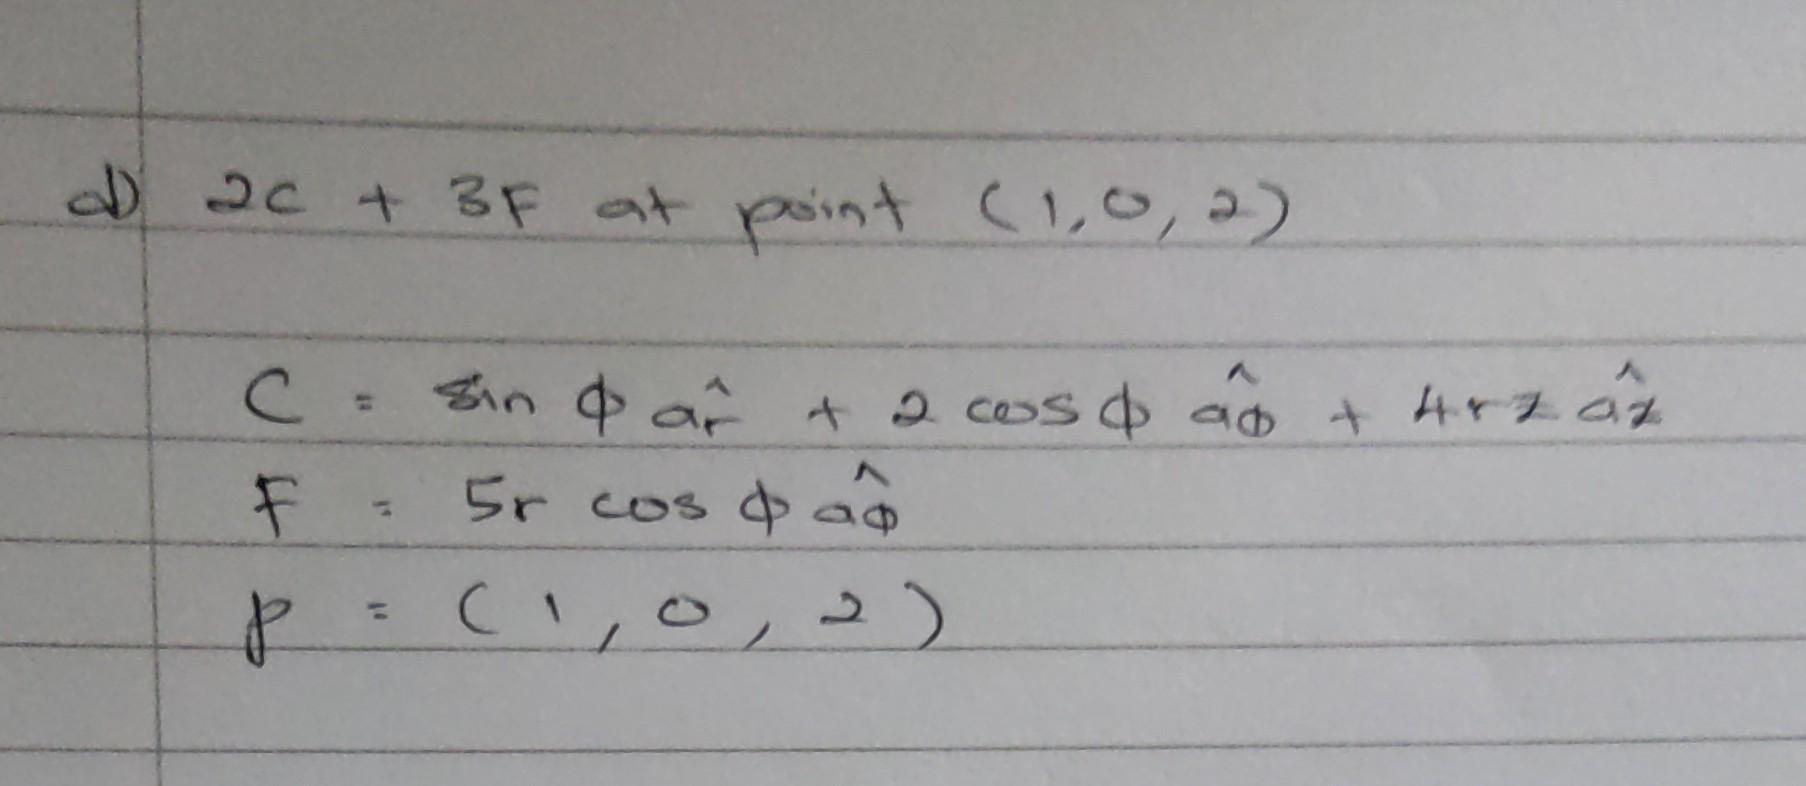 d) 2C + 3F at point (1,0,2)
C = sin ϕ âr + 2 cos ϕ âϕ + 4rz âz
F = 5r cos ϕ âϕ
p = (1,0,2)